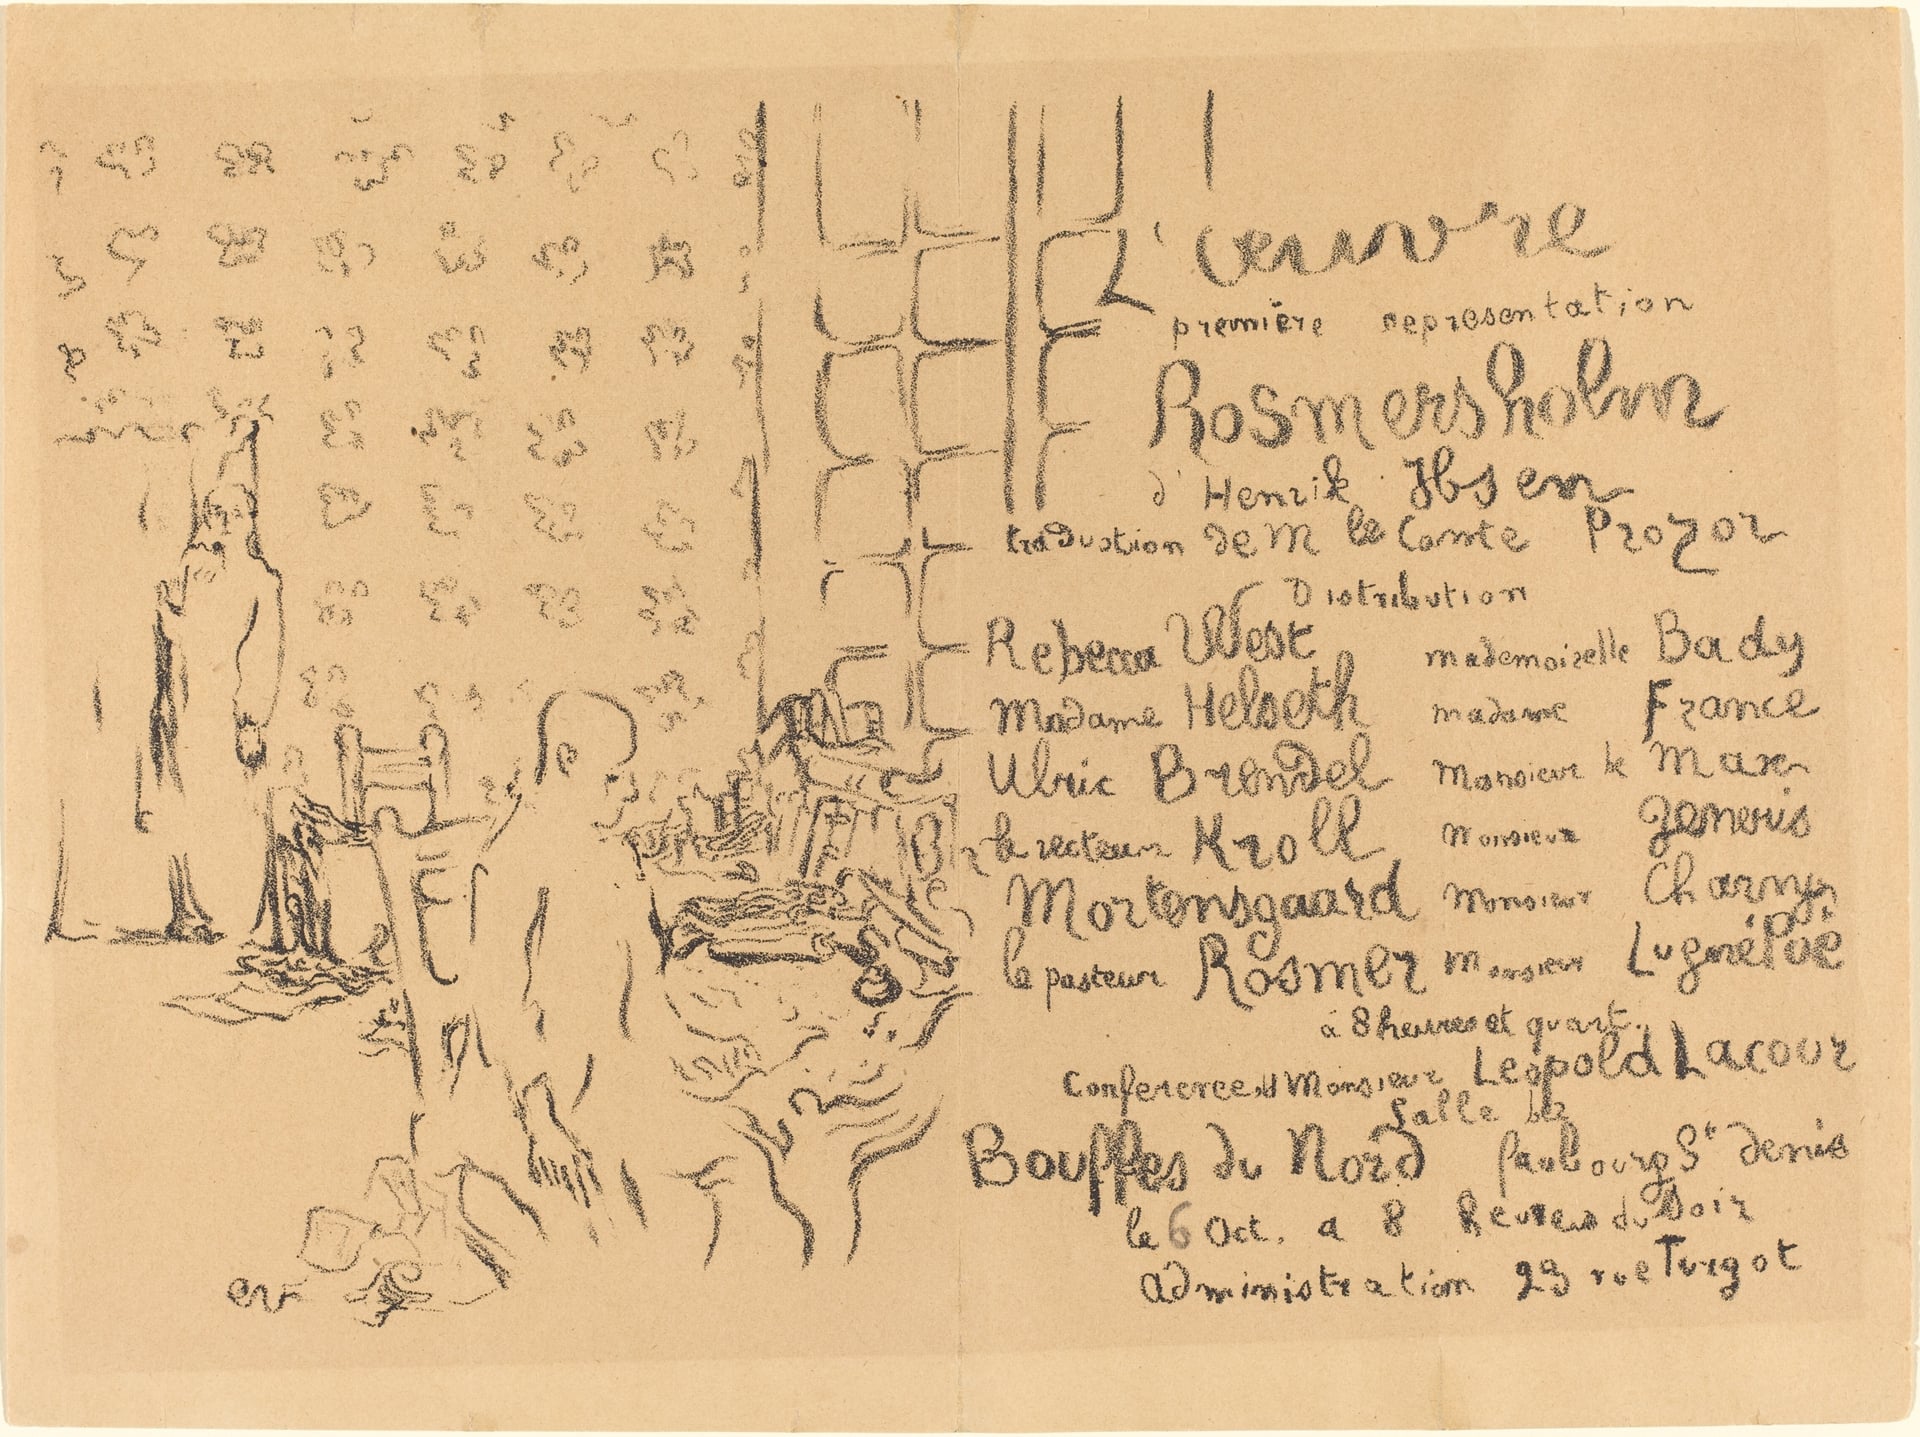 L'œuvre
première representation
Rosmersholm
d' Henrik Ibsen
traduction de M le Comte Prozor
Distribution
Rebecca West mademoiselle Bady
Madame Helseth madame France
Ulric Brendel Monsieur de Max
le recteur Kroll Monsieur
Mortensgaard Monsieur Charny
le pasteur Rosmer Monsieur Lugné Poë
à 8 heures et quart.
Conference de Monsieur Leopold Lacour
Salle de
Bouffes du Nord faubourg St denis
le 6 Oct. a 8 heures du Soir
administration 23 rue Turgot
ev